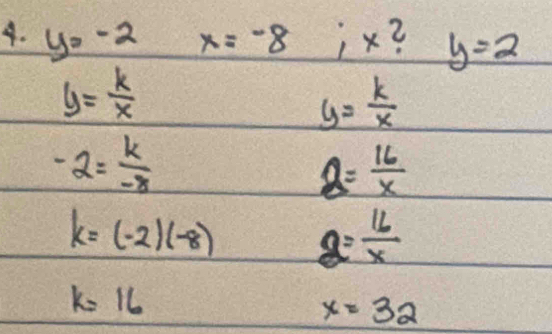 4. y = -2 x = -8 ; x? y = 2
y = k/x y = k/x
-2 = k/-8 2 = 16/x
k = (-2)(-8) 2 = 16/x
k = 16 x = 32